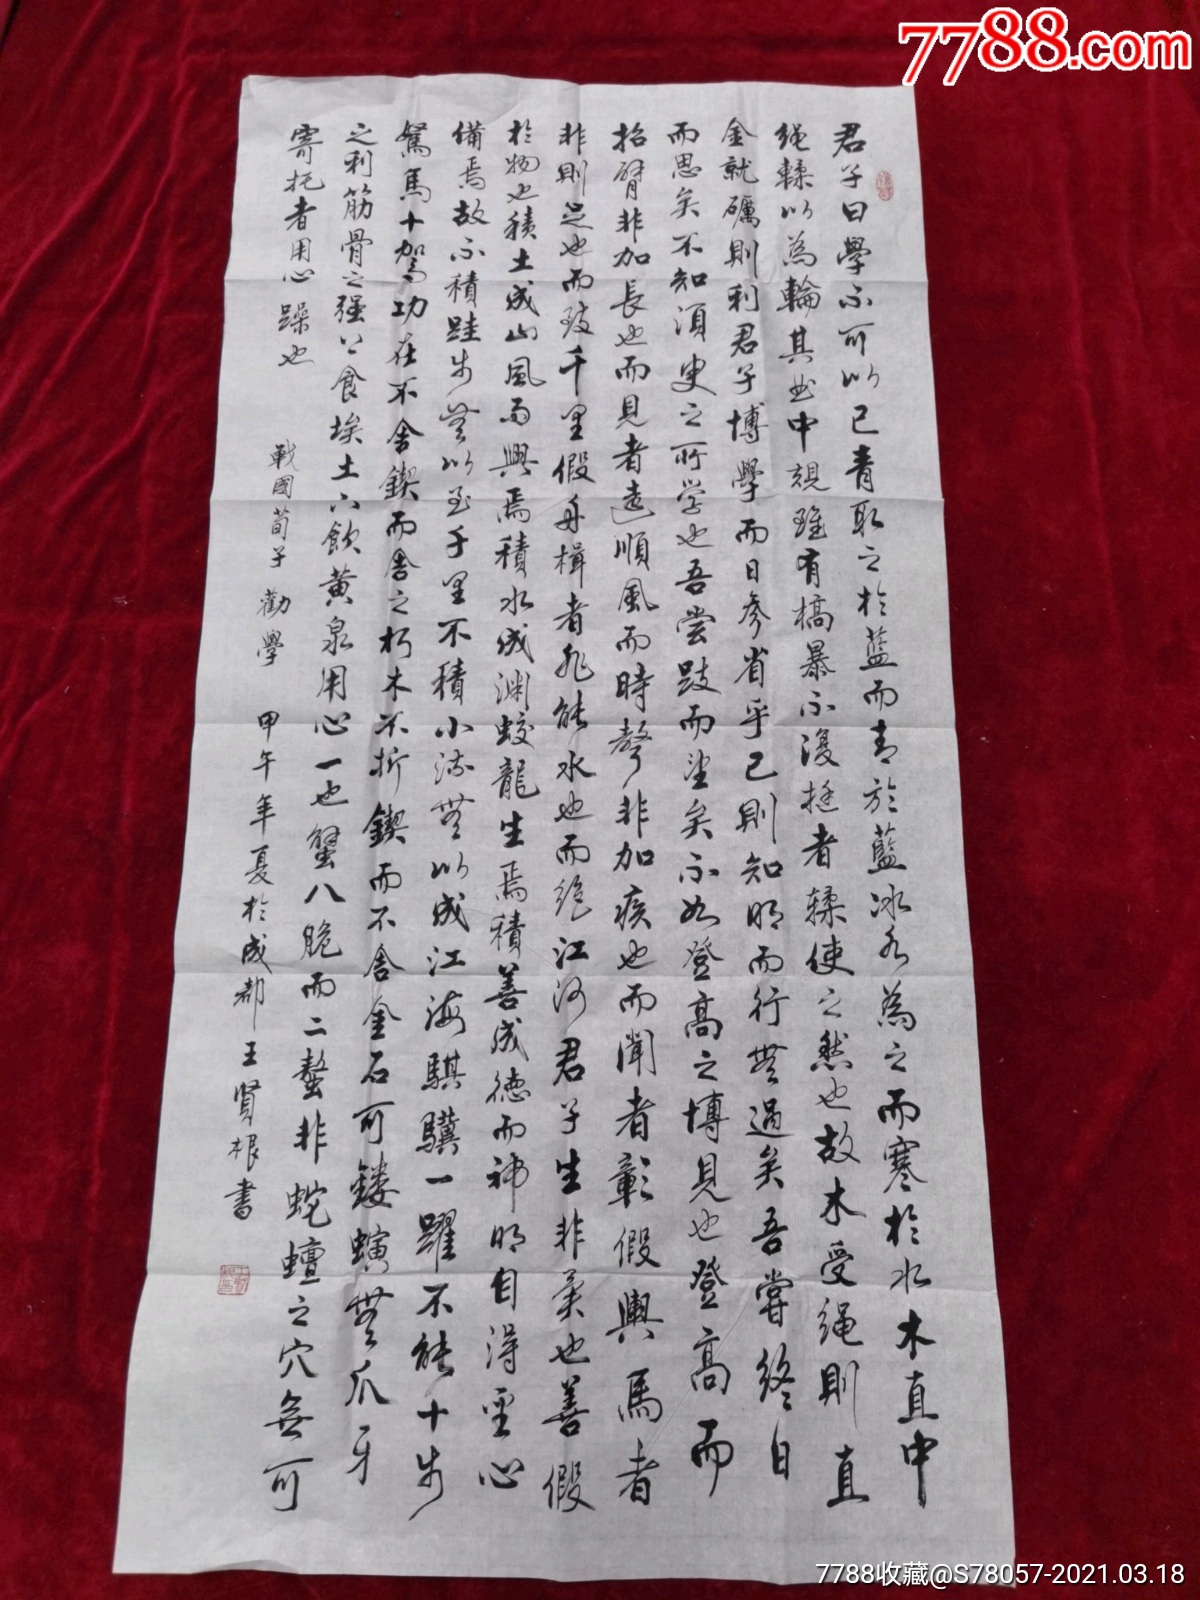 7788.com
君子曰學不可以已青取之於藍而青於藍冰水為之而寒於水木直中
繩輮以為輪其曲中規雖有槁暴不復挺者輮使之然也故木受繩則直
金就礪則利君子博學而日參省乎己則知明而行無過矣吾嘗終日
而思矣不如須臾之所学也吾尝跂而望矣不如登高之博見也登高而
招臂非加長也而見者遠順風而時聲非加疾也而聞者彰假輿馬者
非則足也而致千里假舟楫者非能水也而絕江河君子生非異也善假
於物也積土成山風雨興焉積水成渊蛟龍生焉積善成德而神明自得聖心
備焉故不積跬步無以至千里不積小流無以成江海騏驥一躍不能十步
駑馬十駕功在不舍鍥而舍之朽木不折鍥而不舍金石可鏤螾無爪牙
之利筋骨之强上食埃土下飲黄泉用心一也蟹八跪而二螯非蛇蟺之穴無可
寄托者用心躁也
戰國荀子 勸學 甲午年夏於成都 王賢根書
7788收藏@S78057-2021.03.18